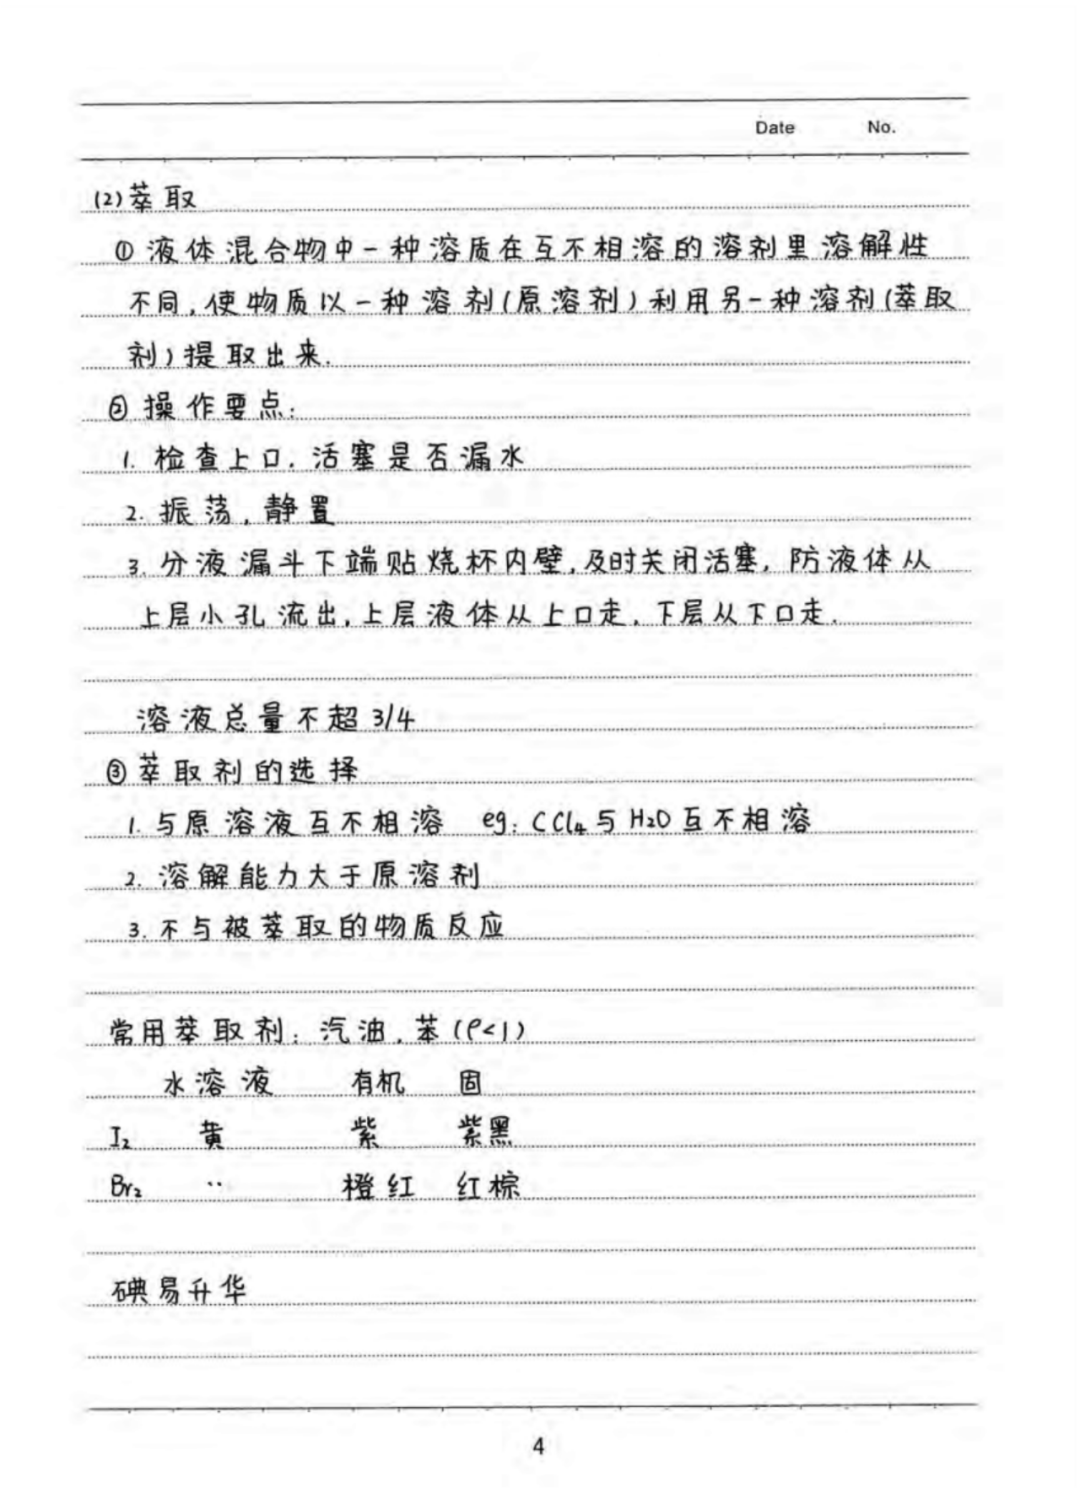 Date No.
(2)萃取
①液体混合物中一种溶质在互不相溶的溶剂里溶解性
不同,使物质以一种溶剂(原溶剂)利用另一种溶剂(萃取
剂)提取出来.
②操作要点:
1. 检查上口,活塞是否漏水
2. 振荡,静置
3. 分液漏斗下端贴烧杯内壁,及时关闭活塞,防液体从
上层小孔流出,上层液体从上口走,下层从下口走.
溶液总量不超3/4
③萃取剂的选择
1. 与原溶液互不相溶 eg: CCl₄与H₂O互不相溶
2. 溶解能力大于原溶剂
3. 不与被萃取的物质反应
常用萃取剂:汽油,苯(ρ<1)
水溶液 有机 固
I₂ 黄 紫 紫黑
Br₂ ·· 橙红 红棕
碘易升华
4